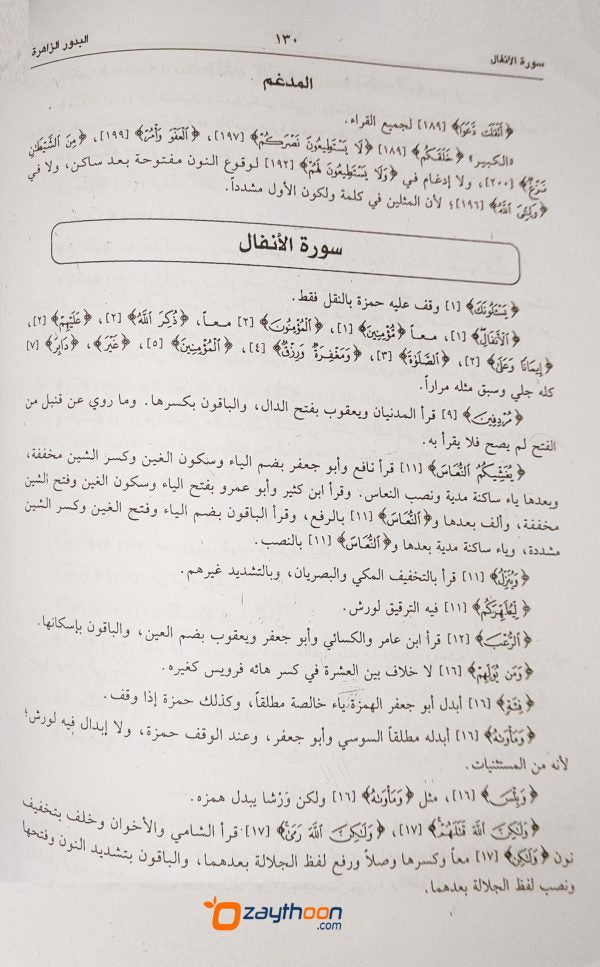 سورة الأنفال ١٣٠ البدور الزاهرة
المدغم
﴿أَثْقَلَت دَّعَوَا﴾ [١٨٩] لجميع القراء.
«الكبير» ﴿خَلَقَكُم﴾ [١٨٩] ﴿لَا يَسْتَطِيعُونَ نَصْرَكُمْ﴾ [١٩٧]، ﴿الْعَفْوَ وَأْمُرْ﴾ [١٩٩]، ﴿مِنَ الشَّيْطَانِ
نَزْغٌ﴾ [٢٠٠]، ولا إدغام في ﴿وَلَا يَسْتَطِيعُونَ لَهُمْ﴾ [١٩٢] لوقوع النون مفتوحة بعد ساكن، ولا في
﴿وَلِيِّيَ اللَّهُ﴾ [١٩٦]؛ لأن المثلين في كلمة ولكون الأول مشدداً.
سورة الأنفال
﴿يَسْـَٔلُونَكَ﴾ [١] وقف عليه حمزة بالنقل فقط.
﴿الْأَنفَالِ﴾ [١]، معاً ﴿مُؤْمِنِينَ﴾ [١]، ﴿الْمُؤْمِنُونَ﴾ [٢] معاً، ﴿ذُكِرَ اللَّهُ﴾ [٢]، ﴿عَلَيْهِمْ﴾ [٢]،
﴿إِيمَانًا وَعَلَىٰ﴾ [٢]، ﴿الصَّلَوٰةَ﴾ [٣]، ﴿وَمَغْفِرَةٌ وَرِزْقٌ﴾ [٤]، ﴿الْمُؤْمِنِينَ﴾ [٥]، ﴿غَيْرَ﴾، ﴿دَابِرَ﴾ [٧]
كله جلي وسبق مثله مراراً.
﴿مُرْدِفِينَ﴾ [٩] قرأ المدنيان ويعقوب بفتح الدال، والباقون بكسرها. وما روي عن قنبل من
الفتح لم يصح فلا يقرأ به.
﴿يُغَشِّيكُمُ النُّعَاسَ﴾ [١١] قرأ نافع وأبو جعفر بضم الياء وسكون الغين وكسر الشين مخففة،
وبعدها ياء ساكنة مدية ونصب النعاس. وقرأ ابن كثير وأبو عمرو بفتح الياء وسكون الغين وفتح الشين
مخففة، وألف بعدها و﴿النُّعَاسُ﴾ [١١] بالرفع، وقرأ الباقون بضم الياء وفتح الغين وكسر الشين
مشددة، وياء ساكنة مدية بعدها و﴿النُّعَاسَ﴾ [١١] بالنصب.
﴿وَيُنَزِّلُ﴾ [١١] قرأ بالتخفيف المكي والبصريان، وبالتشديد غيرهم.
﴿لِيُطَهِّرَكُم﴾ [١١] فيه الترقيق لورش.
﴿الرُّعْبَ﴾ [١٢] قرأ ابن عامر والكسائي وأبو جعفر ويعقوب بضم العين، والباقون بإسكانها.
﴿وَمَن يُوَلِّهِمْ﴾ [١٦] لا خلاف بين العشرة في كسر هائه فرويس كغيره.
﴿فِئَةٍ﴾ [١٦] أبدل أبو جعفر الهمزة ياء خالصة مطلقاً، وكذلك حمزة إذا وقف.
﴿وَمَأْوَىٰهُ﴾ [١٦] أبدله مطلقاً السوسي وأبو جعفر، وعند الوقف حمزة، ولا إبدال فيه لورش؛
لأنه من المستثنيات.
﴿وَبِئْسَ﴾ [١٦]، مثل ﴿وَمَأْوَىٰهُ﴾ [١٦] ولكن ورشا يبدل همزه.
﴿وَلَٰكِنَّ اللَّهَ قَتَلَهُمْ﴾ [١٧]، ﴿وَلَٰكِنَّ اللَّهَ رَمَىٰ﴾ [١٧] قرأ الشامي والأخوان وخلف بتخفيف
نون ﴿وَلَٰكِن﴾ [١٧] معاً وكسرها وصلاً ورفع لفظ الجلالة بعدهما، والباقون بتشديد النون وفتحها
ونصب لفظ الجلالة بعدهما.
zaythoon
.com